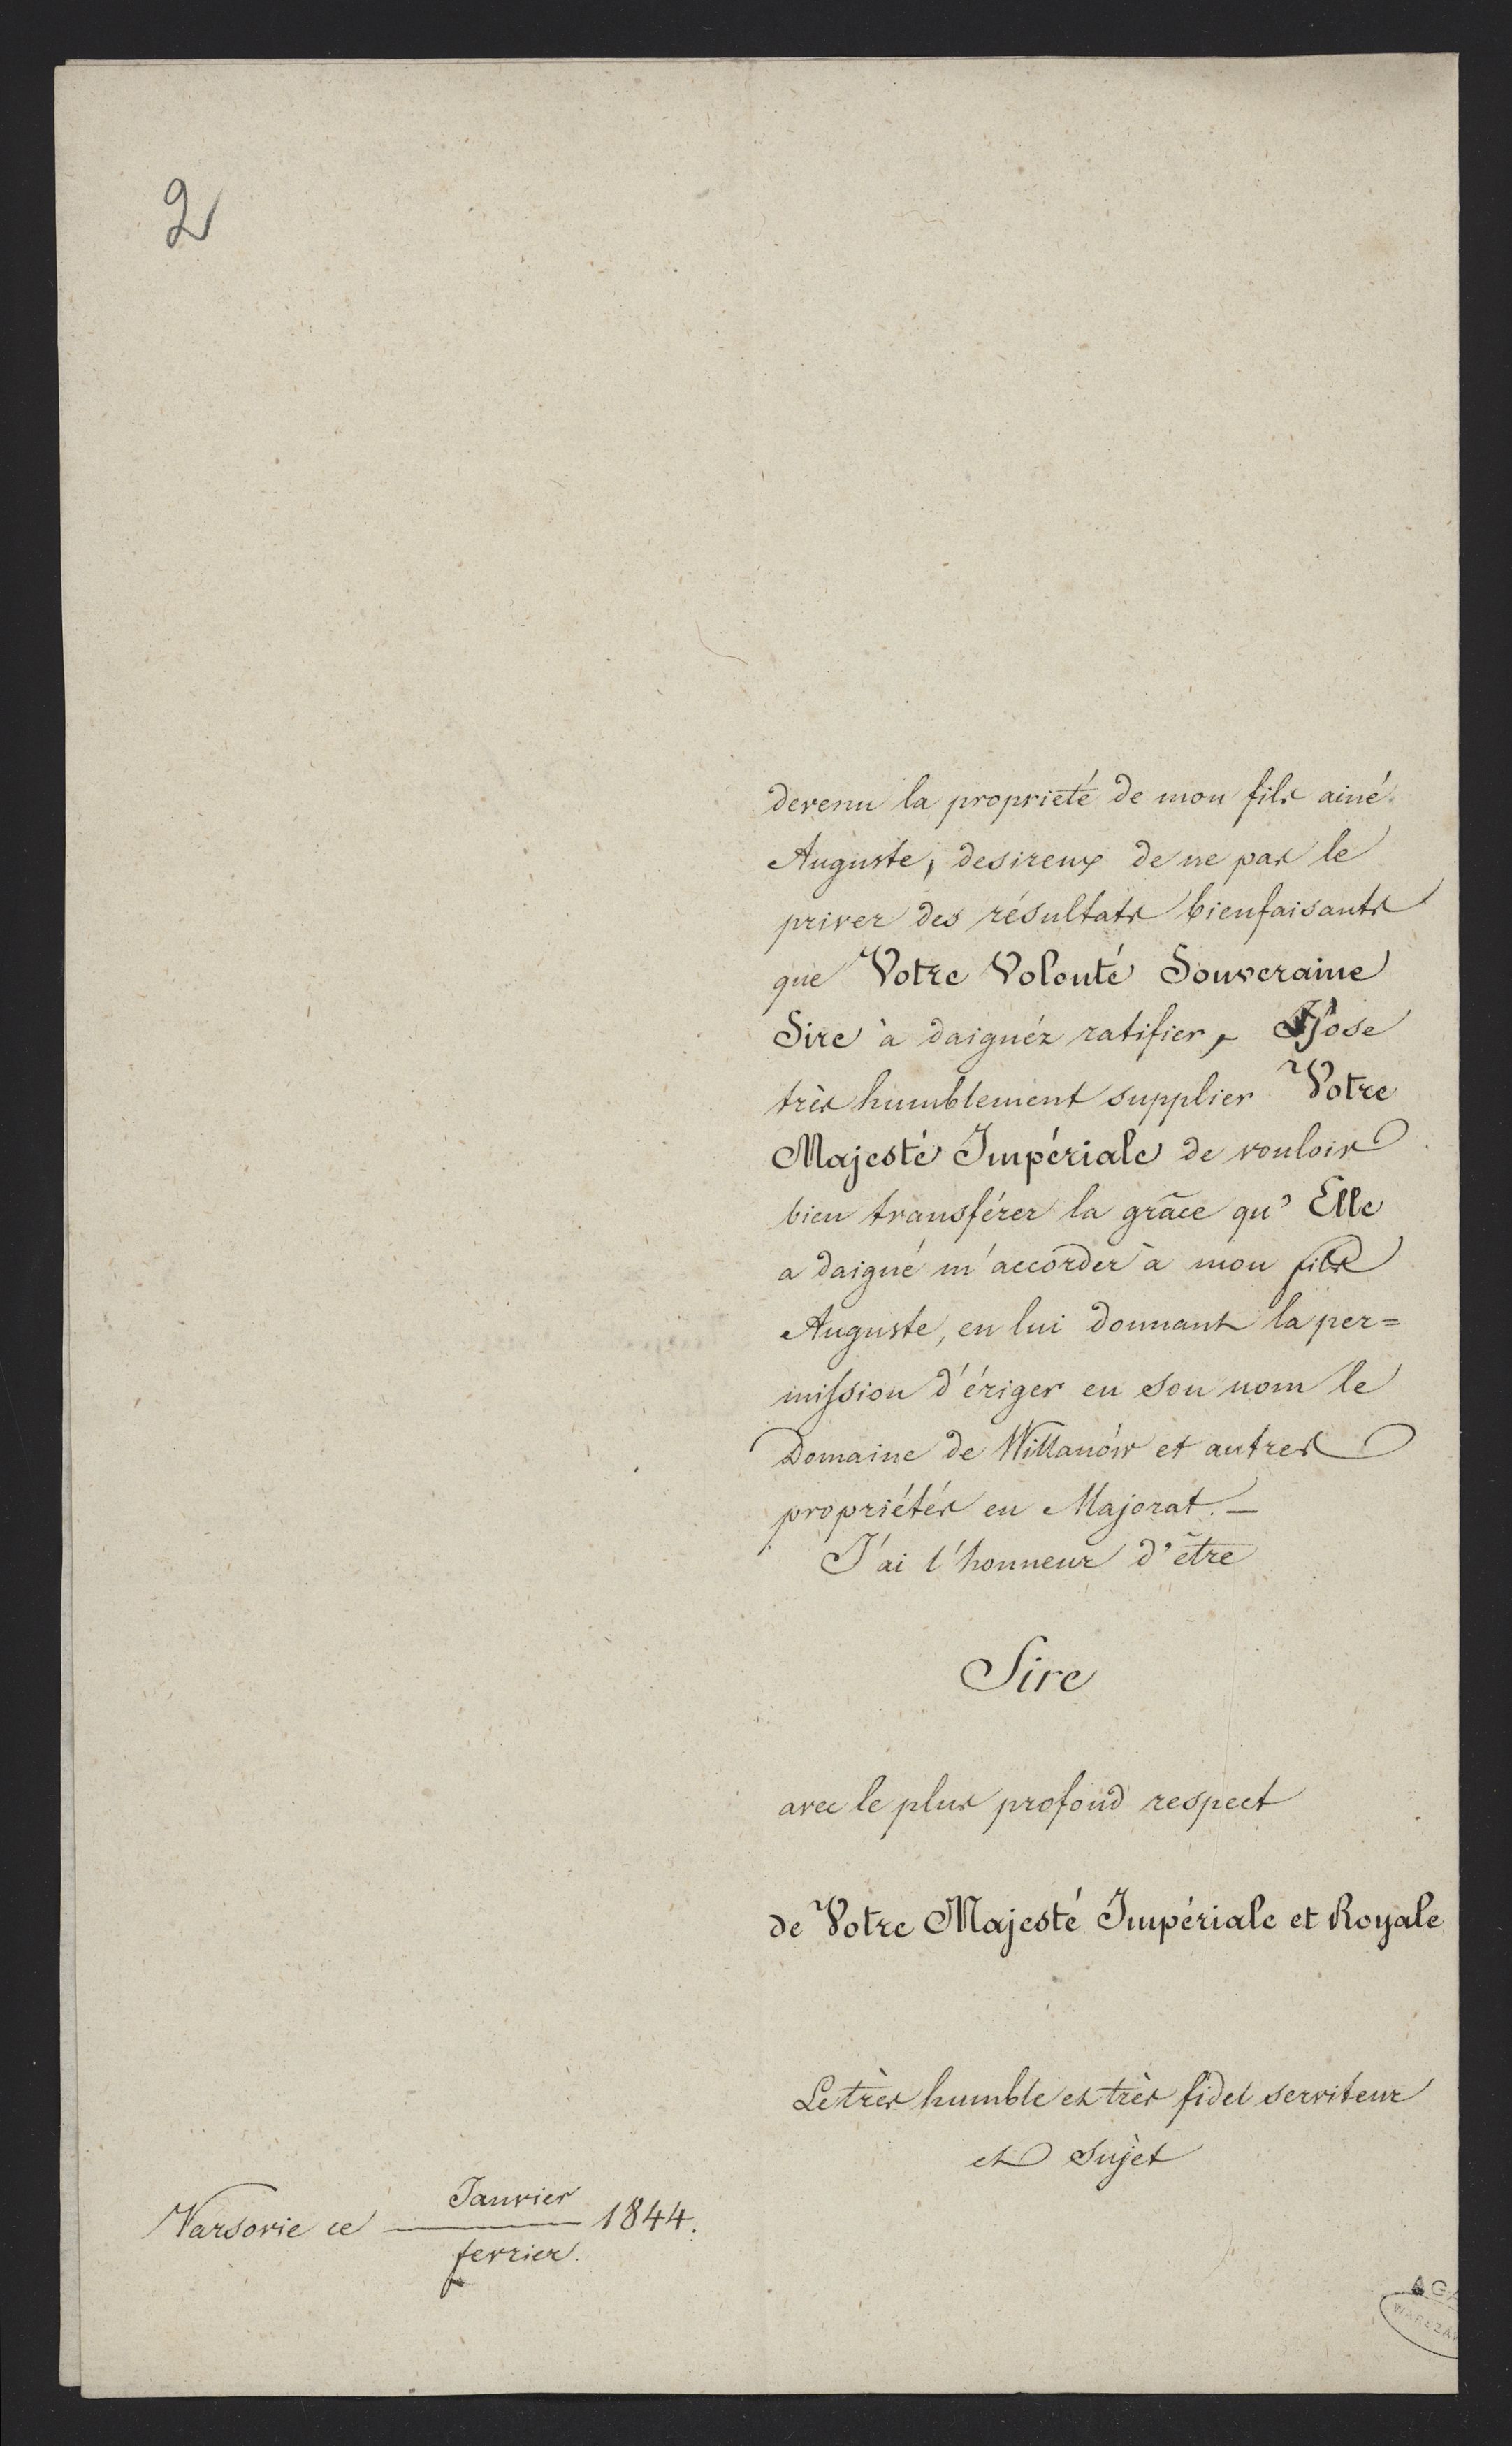 2
devenu la proprieté de mon fils ainé
Auguste, desireux de ne pas le
priver des résultats bienfaisants
que Votre Volonté Souveraine
Sire à daignéz ratifier, J'ose
très humblement supplier Votre
Majesté Impériale de vouloir
bien transférer la grâce qu'Elle
a daigné m'accorder à mon fils
Auguste, en lui donnant la per=
mission d'ériger en son nom le
Domaine de Willanów et autres
propriétés en Majorat. —
J'ai l'honneur d'être
Sire
avec le plus profond respect
de Votre Majesté Impériale et Royale
Le très humble et très fidel serviteur
et sujet
Janvier
Varsovie ce — 1844.
fevrier.
AGA
WARSZAW